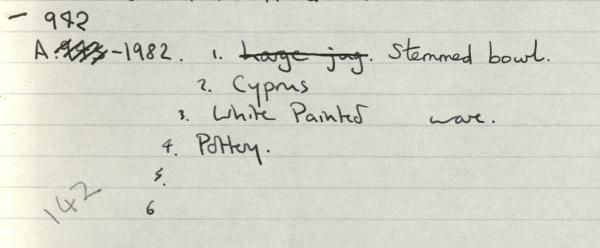 – 942
A. -1982. 1. Large jug. Stemmed bowl.
2. Cyprus
3. White Painted ware.
4. Pottery.
5.
6
142